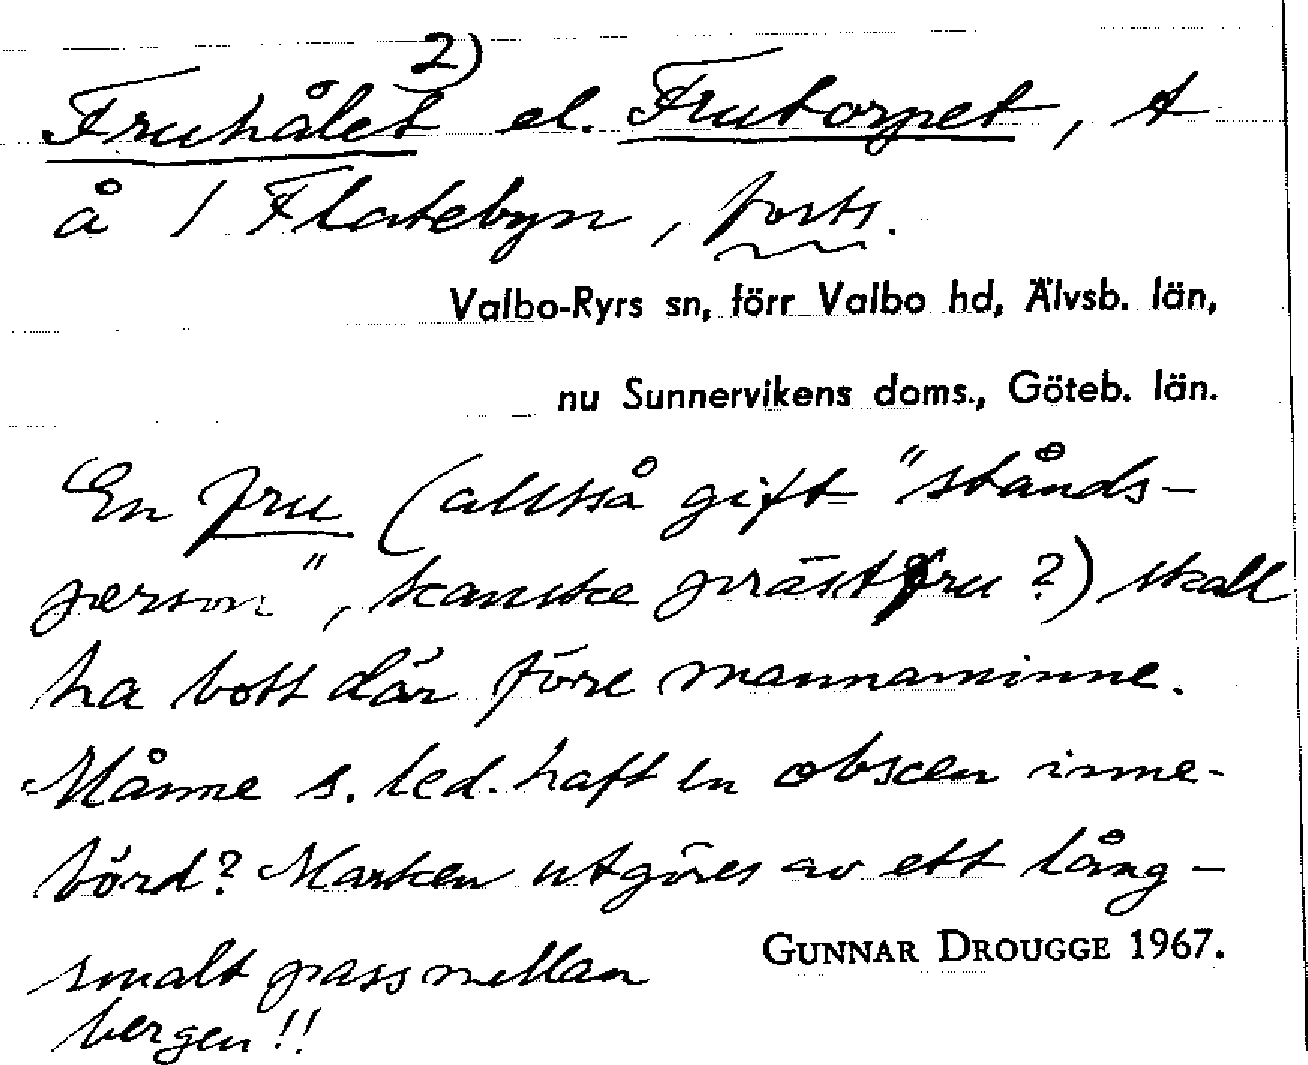 Fruhålet 2) el. Frutorpet, t
å 1 Flatebyn, forts.
Valbo-Ryrs sn, förr Valbo hd, Älvsb. län,
nu Sunnervikens doms., Göteb. län.
En fru (alltså gift "stånds-
person", kanske prästfru?) skall
ha bott där före mannaminne.
Månne s. led. haft en obscen inne-
börd? Marken utgöres av ett lång-
smalt pass mellan
bergen!!
GUNNAR DROUGGE 1967.